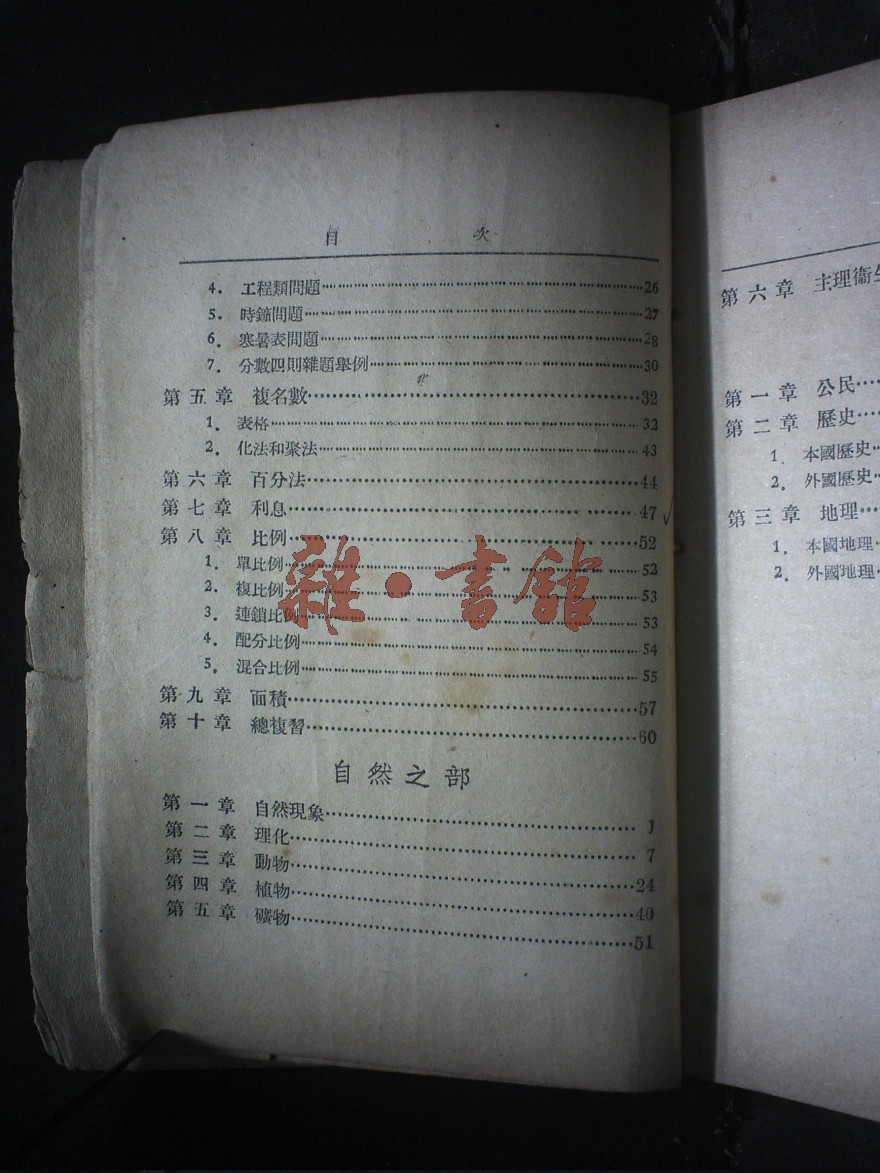 目 次
4. 工程類問題 26
5. 時鐘問題 27
6. 寒暑表問題 28
7. 分數四則雜題舉例 30
第五章 複名數 32
1. 表格 32
2. 化法和聚法 43
第六章 百分法 44
第七章 利息 47
第八章 比例 52
1. 單比例 52
2. 複比例 53
3. 連鎖比例 53
4. 配分比例 54
5. 混合比例 55
第九章 面積 57
第十章 總複習 60
自然之部
第一章 自然現象 1
第二章 理化 7
第三章 動物 24
第四章 植物 40
第五章 礦物 51
第六章 主理衞生
第一章 公民
第二章 歷史
1. 本國歷史
2. 外國歷史
第三章 地理
1. 本國地理
2. 外國地理
雜·書館